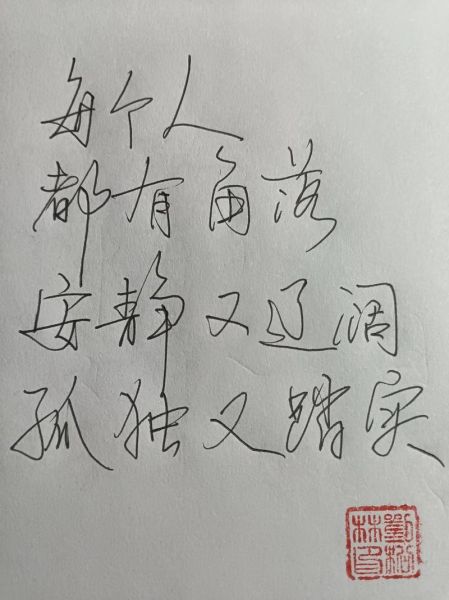 每个人
都有角落
安静又辽阔
孤独又踏实